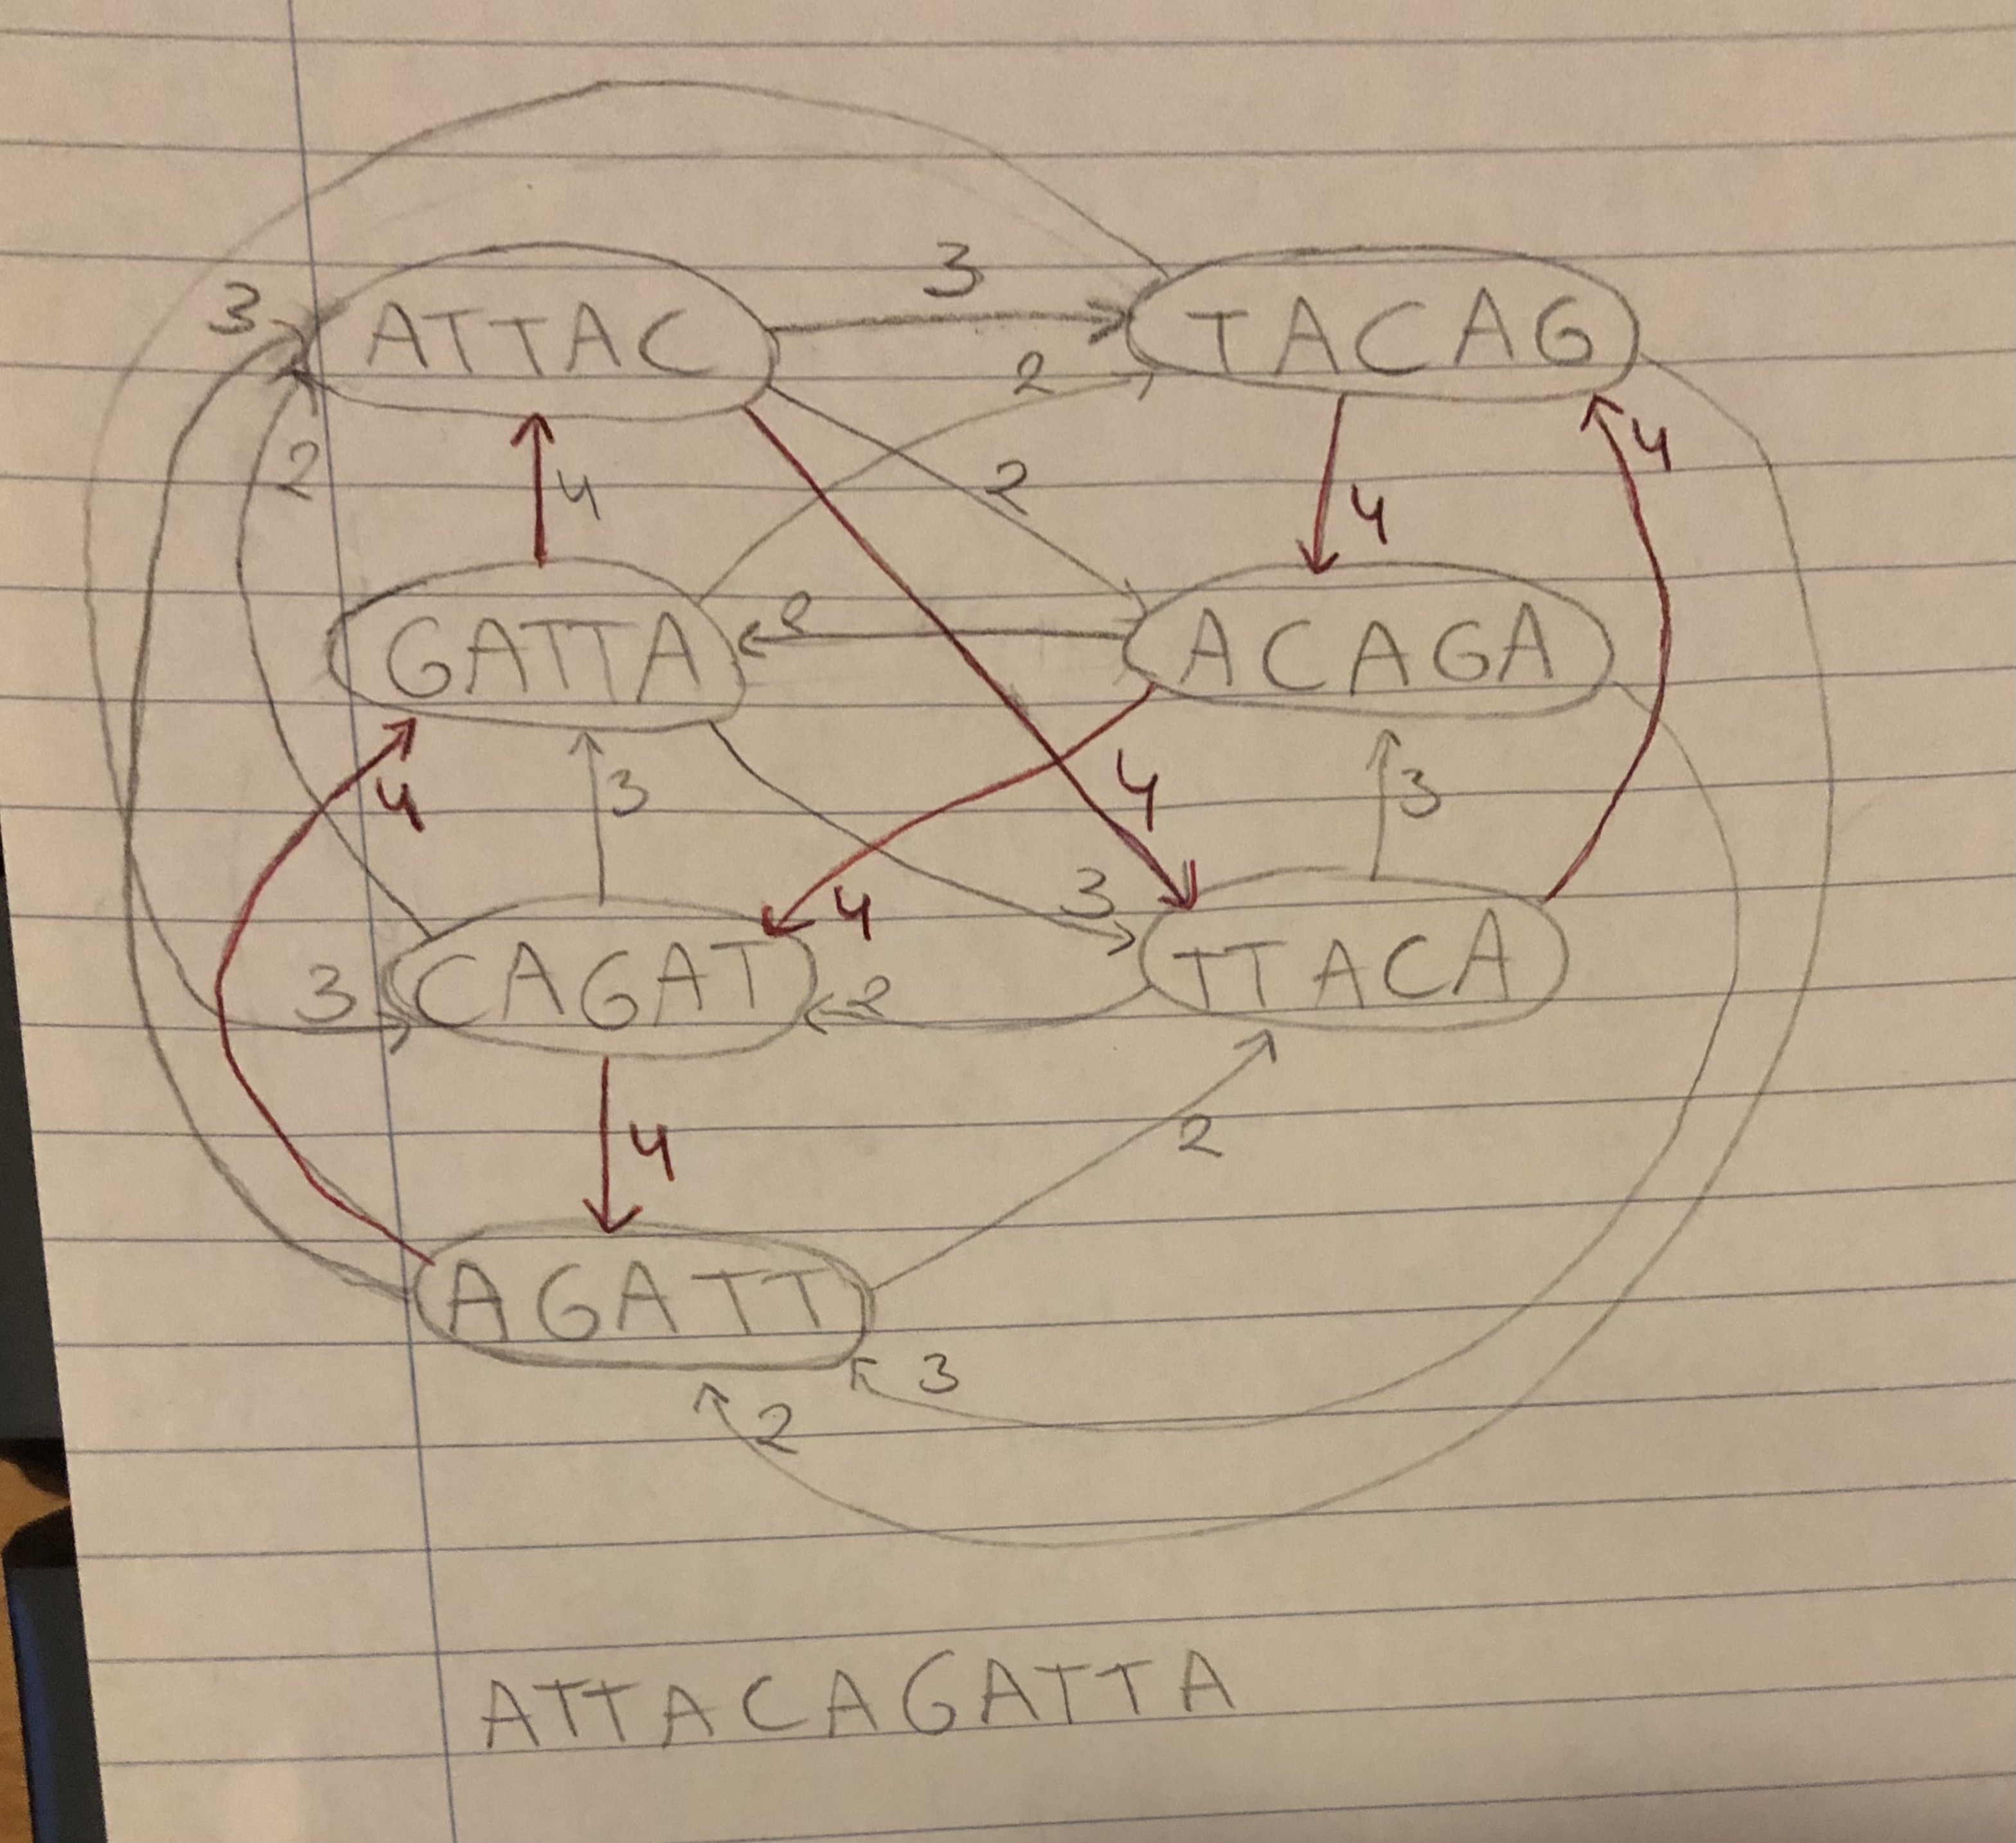 3
3 ATTAC TACAG
2
2 4 2 4 4
GATTA 2 ACAGA
4 3 4 3
4 3
3 CAGAT 2 TTACA
4 2
AGATT
3
2
ATTACAGATTA